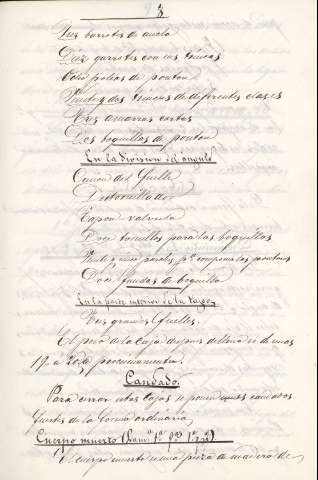 3
Seis barrotes de suelo
Diez garrotes con sus trincas
Ocho poleas de ponton
Veinte y dos trincas de diferentes clases
Tres amarras cortas
Dos boquillas de ponton
En la division del angulo
Cañon del fuelle
Destornillador
Tapon valvula
Doce tornillos para las boquillas
Veinte y cinco parches pª componer los pontones
Doce fundas de boquilla
En la parte interior de la tapa
Tres grandes fuelles.
El peso de la caja despues de llena es de unos
19. a 20. procsimamente.
Candado.
Para cerrar estas cajas se ponen unos candados
fuertes de la forma ordinaria.
Cuerpo muerto (Lamª 1ª
El cuerpo muerto es una pieza de madera de